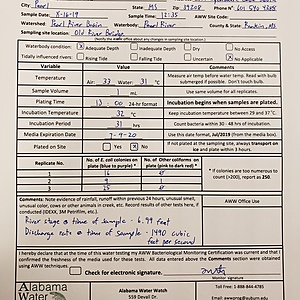 City Pearl State MS Zip 39208 Phone # 601
Sample Date 8-16-19 Sample Time 12:35 AWW Site Code
Watershed: Pearl River Basin Waterbody: Pearl River County & State: Rankin, MS
Sampling site location: Old River Bridge
(Notify the office about any changes in sampling site)
Waterbody condition: Adequate Depth Inadequate Depth Dry No Access
Tidally influenced rivers: Rising Tide Falling Tide Not Evident
Variable Value Comments
Temperature Air: 33 Water: 31 °C Measure air temp before water temp. Read with bulb submerged if possible. Don't touch bulb.
Sample Volume 1 mL Use same volume for all replicates.
Plating Time 13 : 00 24-hr format Incubation begins when samples are plated.
Incubation Temperature 32 °C Keep incubation temperature between 29 and 37 °C.
Incubation Period 31 hrs Count bacteria within 30 - 48 hrs of incubation.
Media Expiration Date 7-9-20 Use this date format, Jul/2019 (from the media bottle).
Plated on Site Yes No If not plating at the sampling site, always transport on ice and plate within 3 hours.
Replicate No. No. of E. coli colonies on plate (blue to purple) * No. of Other coliforms on plate (pink to dark red) * * if colonies are too numerous to count (>200), report as 250.
1 16
2 9
3 25 45
Comments: Note evidence of rainfall, runoff within previous 24 hours, unusual smell, unusual color, cows or other animals in creek, etc. Record results of other tests here, if conducted (IDEXX, 3M Petrifilm, etc.)
AWW Office Use
River stage @ time of sample - 6.99 feet
Discharge rate @ time of sample - 1490 cubic
feet per second
I hereby declare that at the time of this water testing my AWW Bacteriological Monitoring Certification was current and that I confirmed the freshness of the media used for these tests. All data entered above the Comments section were obtained using AWW techniques.
Check for electronic signature.
Monitor signature
Alabama
Water
Alabama Water Watch
559 Devall Dr.
Toll Free: 1-888-844-4785
Email: awwprog@auburn.edu